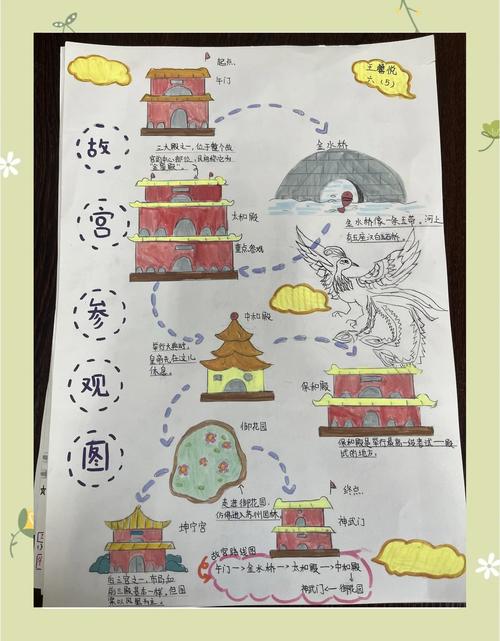 故宫参观图
王馨悦
六(5)
起点、
午门
金水桥
金水桥像一条玉带。河上
有五座汉白玉石桥。
三大殿之一,位于整个故
宫的中心部位,
"金銮殿"。
太和殿
重点参观
中和殿
举行大典时,
皇帝先在这儿
休息。
保和殿
保和殿是举行最高一级考试——殿
试的地方。
御花园
走进御花园,
仿佛进入苏州园林。
坤宁宫
后三宫之一,布局如
前三殿基本一样,但图
案以凤凰为主。
终点
神武门
故宫路线图
午门→金水桥→太和殿→中和殿
神武门←御花园